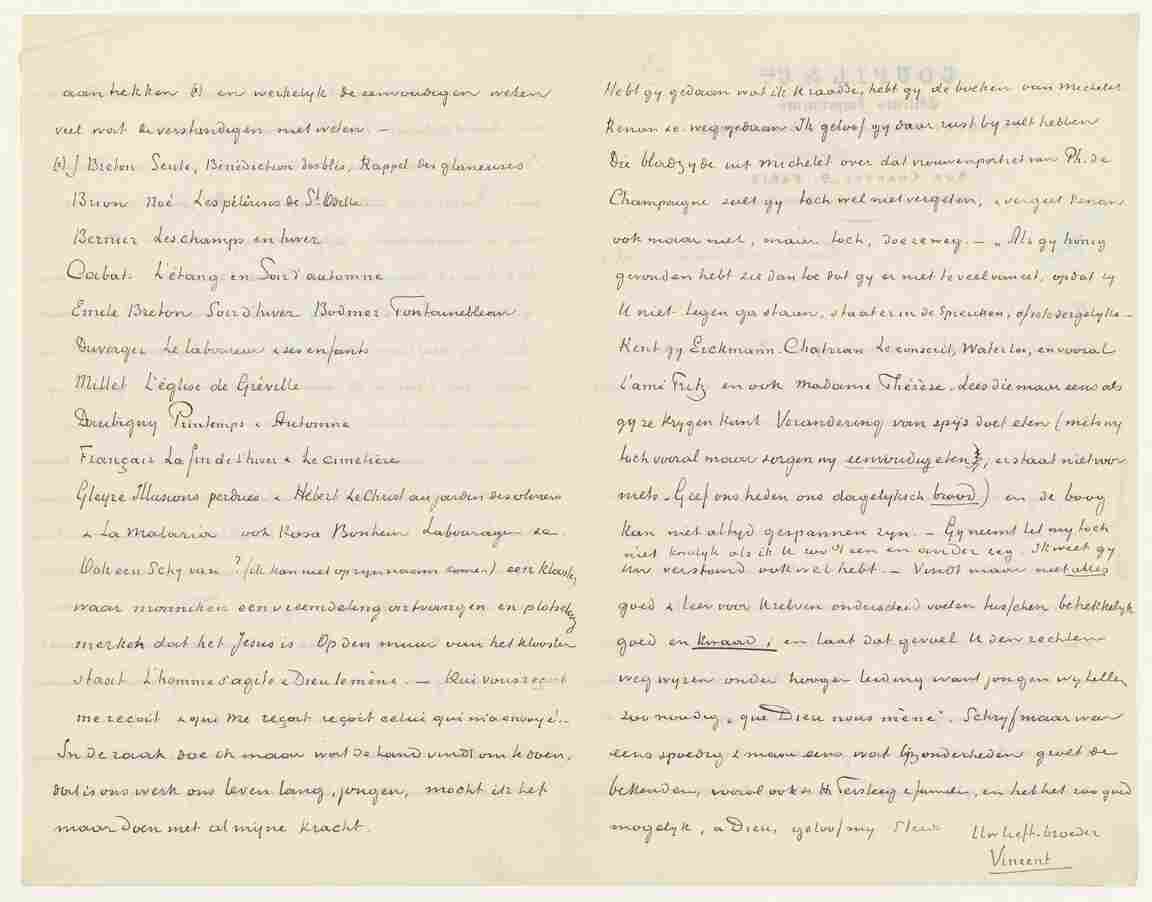 aantrekken *) en werkelyk de eenvoudigen weten
veel wat de verstandigen niet weten. —
*) Breton Seule, Bénédiction des blés, Rappel des glaneuses
Brion Noé Les pélerins de St. Odile
Bernier Les champs en hiver
Cabat. L'étang en Soir d'automne
Emile Breton Soir d'hiver Bodmer Fontainebleau
Duverger Le laboureur & ses enfants
Millet L'église de Gréville
Daubigny Printemps & Automne
Français La fin de l'hiver & Le cimetière
Gleyre Illusions perdues & Hébert Le Christ au jardin des oliviers
& La Malaria ook Rosa Bonheur Labourage &c
Ook een Schy van ? (ik kan niet op zyn naam komen) een klooster
waar monniken een vreemdeling ontvangen en plotseling
merken dat het Jesus is. Op den muur van het klooster
staat L'homme s'agite & Dieu le mène. — Qui vous reçoit
me reçoit & qui me reçoit reçoit celui qui m'a envoyé.
In de zaak doe ik maar wat de hand vindt om te doen,
dat is ons werk ons leven lang, jongen, mocht ik het
maar doen met al myne kracht.
Hebt gy gedaan wat ik U raadde, hebt gy de boeken van Michelet
Renan &c weggedaan Ik geloof gy daar rust by zult hebben
Die bladzyde uit Michelet over dat vrouwenportret van Ph. de
Champaigne zult gy toch wel niet vergeten, & vergeet Renan
ook maar niet, maar toch, doe ze weg. — „Als gy honig
gevonden hebt zie dan toe dat gy er niet te veel van eet, opdat zy
U niet tegen ga staan, staat er in de Spreuken, of iets dergelyks —
Kent gy Erckmann-Chatrian Le conscrit, Waterloo, en vooral
l'ami Fritz en ook Madame Thérèse. Lees die maar eens als
gy ze krygen kunt Verandering van spijs doet eten (mits wy
toch vooral maar zorgen wy eenvoudig eten, er staat niet voor
niets. Geef ons heden ons dagelyksch brood) en de boog
kan niet altyd gespannen zyn. — Gy neemt het my toch
niet kwalyk als ik U zoo 't een en ander zeg. Ik weet gy
Uw verstand ook wel hebt. — Vindt maar niet alles
goed & leer voor Uzelven onderscheid voelen tusschen betrekkelyk
goed en kwaad, en laat dat gevoel U den rechten
weg wyzen onder hooger leiding want jongen wy hebben
zoo noodig „que Dieu nous mène". Schryf maar weer
eens spoedig & maar eens wat byzonderheden groet de
bekenden, vooral ook de Hr Tersteeg & familie, en heb het zoo goed
mogelyk, à Dieu, geloof my steeds
Uw liefh. broeder
Vincent